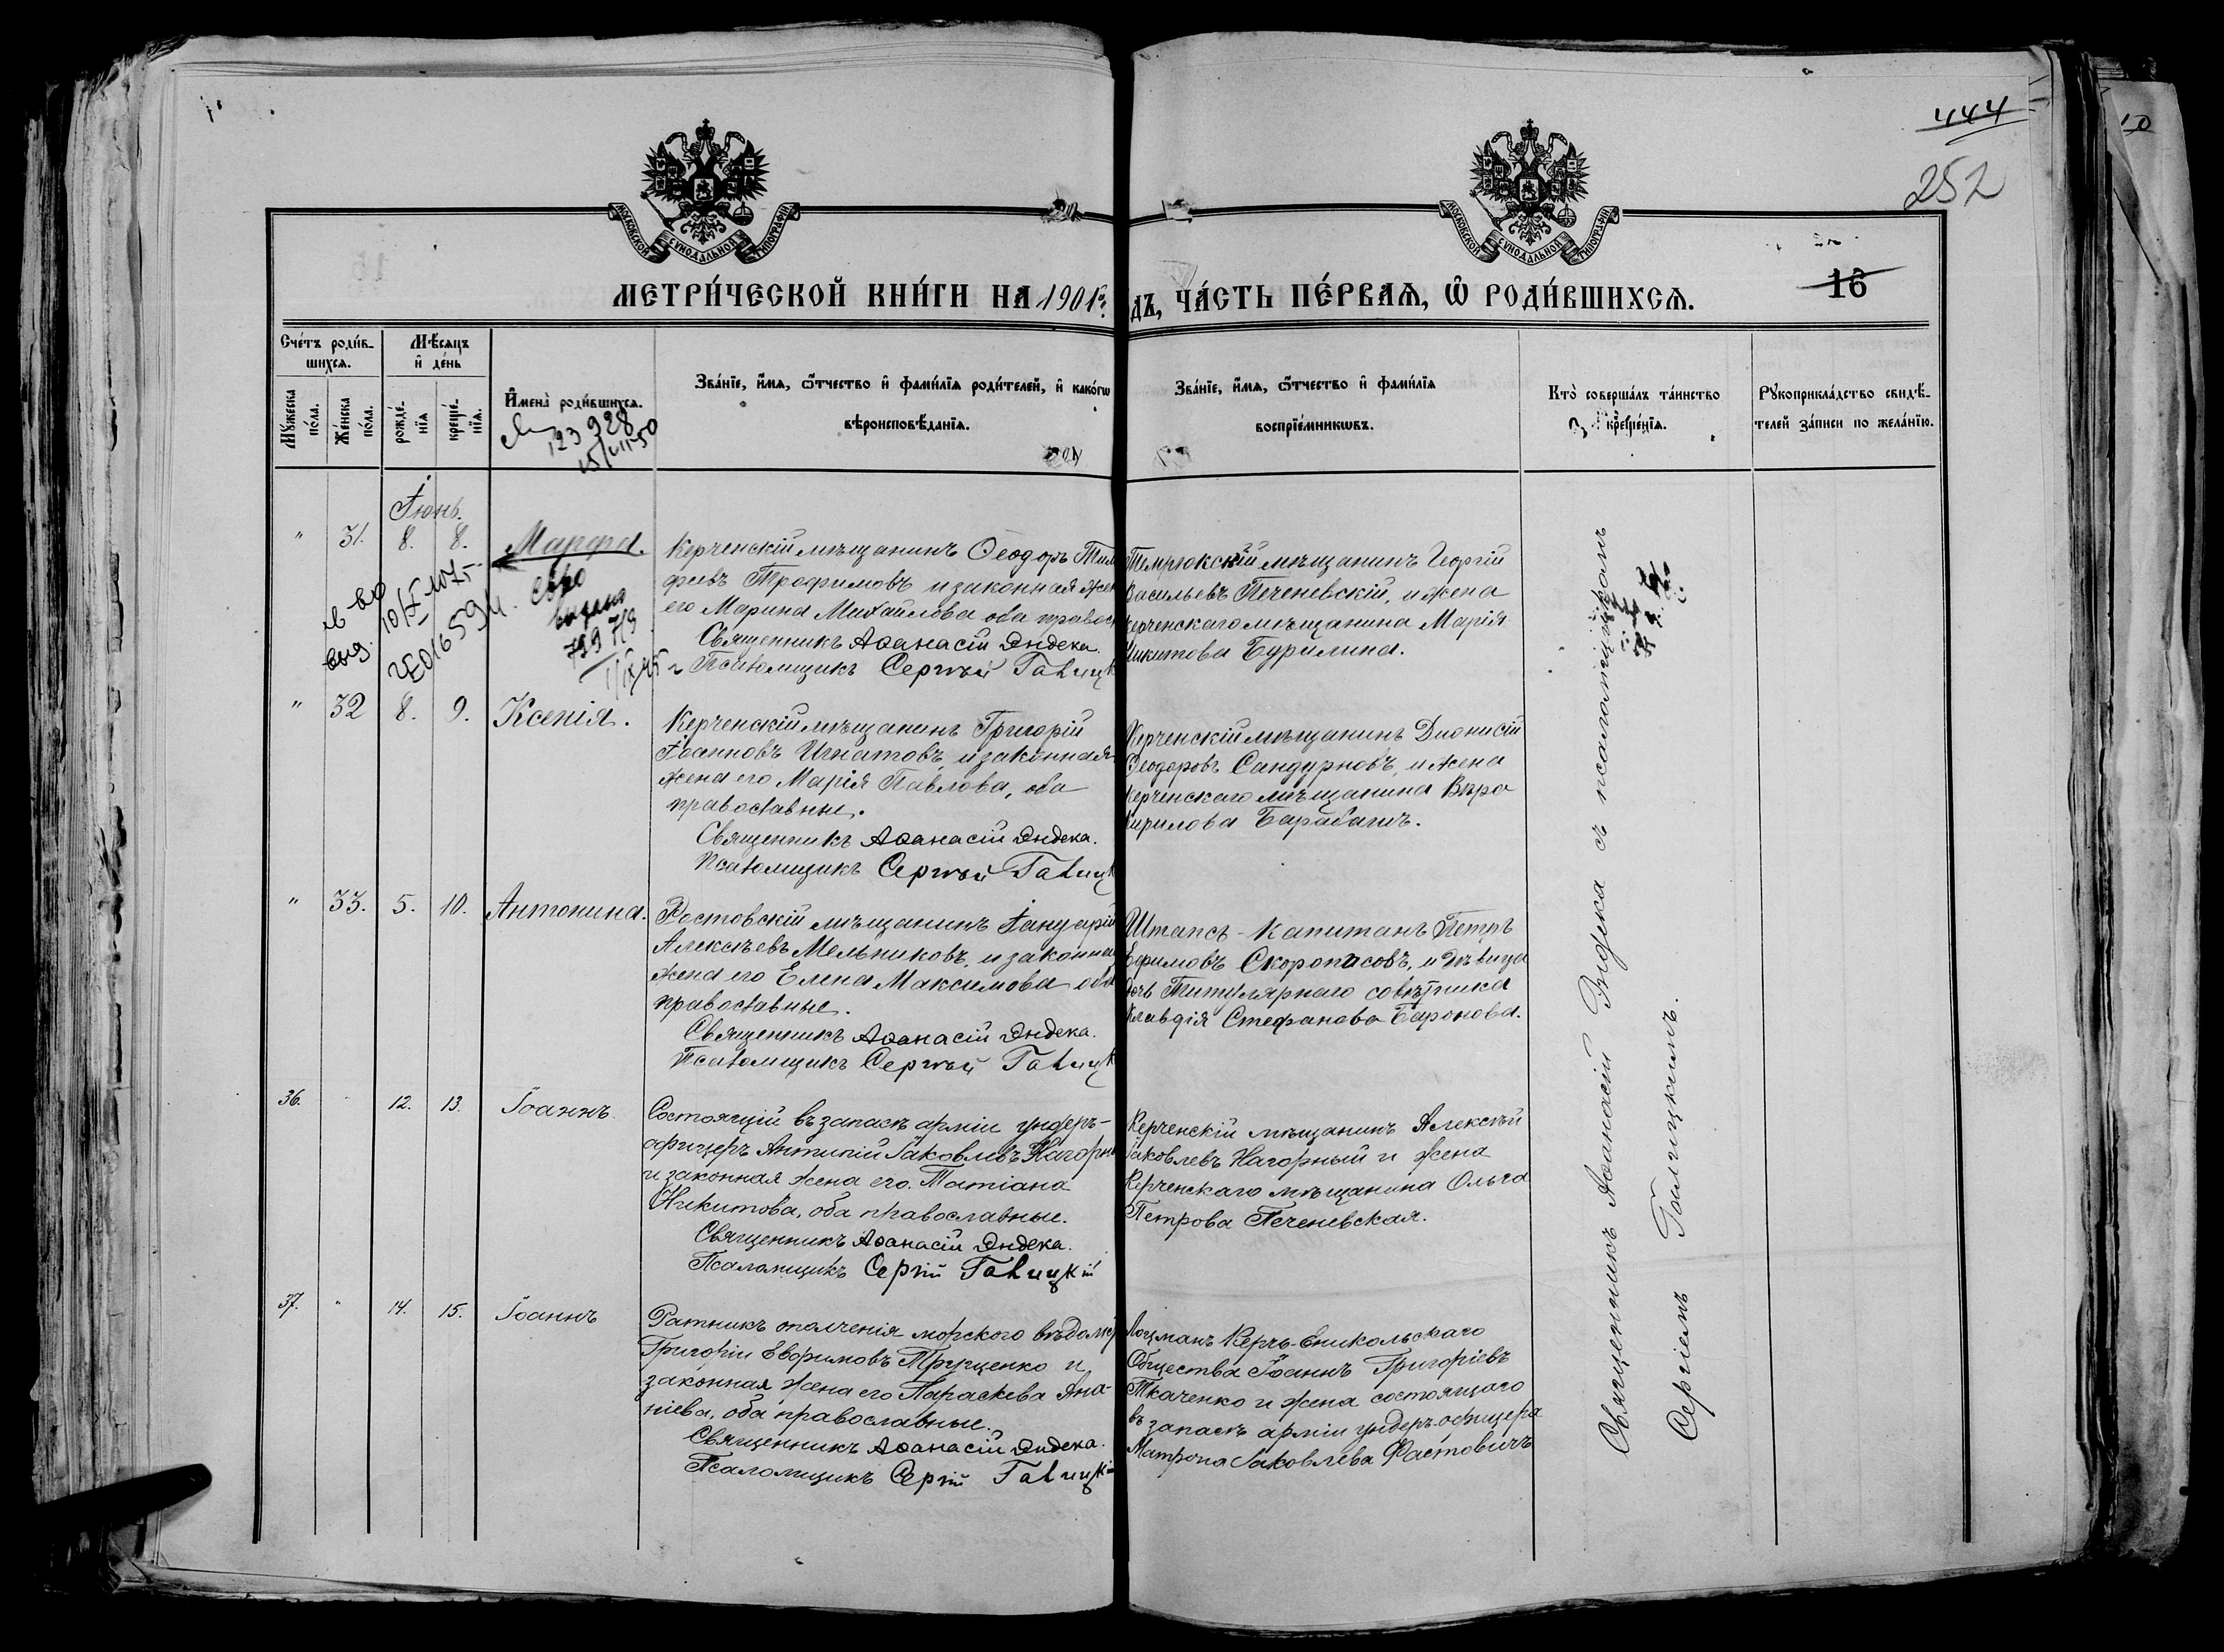 444
252
МОСКОВСКОЙ СѴНОДАЛЬНОЙ ТИПОГРАФІИ
МОСКОВСКОЙ СѴНОДАЛЬНОЙ ТИПОГРАФІИ
МЕТРИ́ЧЕСКОЙ КНИ́ГИ НА 1901 го
дъ, ЧА́СТЬ ПЕ́РВАЯ, Ѿ РОДИ́ВШИХСЯ.
16
Сче́тъ роди́в-
шихся.
Мѣ́сяцъ
и҆ де́нь
Мꙋ́жеска по́ла.
Же́нска по́ла.
рожде́-
нїя
креще́-
нїя.
И҆мена̀ роди́вшихся.
123928
15/VII 50
Зва́нїе, и҆́мя, ѻ҆́тчество и҆ фами́лїя роди́телей, и҆ како́гѡ
вѣроисповѣ́данїя.
Зва́нїе, и҆́мя, ѻ҆́тчество и҆ фами́лїя
воспрїе́мникѡвъ.
Кто̀ соверша́лъ та́инство
креще́нїя.
Рꙋкоприкла́дство свидѣ́-
телей за́писи по жела́нїю.
Іюнь.
" 31. 8. 8. Марфа.
Керченскій мѣщанинъ Ѳеодоръ Тим
фѣевъ Трофимовъ и законная жен
его Марина Михайлова оба правос
Священникъ Аѳанасій Эндека.
Псаломщикъ Сергѣй Галицк
Темрюкскій мѣщанинъ Георгій
Васильевъ Печеневскій, и жена
керченскаго мѣщанина Марія
Никитова Бурилина.
" 32 8. 9. Ксенія.
Керченскій мѣщанинъ Григорій
Іоанновъ Игнатовъ, и законная
жена его Марія Павлова, оба
православные.
Священникъ Аѳанасій Эндека.
Псаломщикъ Сергѣй Галицк
Керченскій мѣщанинъ Дионисій
Ѳеодоровъ Сандурновъ, и жена
керченскаго мѣщанина Вѣра
Кирилова Барабашъ.
" 33. 5. 10. Антонина.
Ростовскій мѣщанинъ Іануарій
Алексѣевъ Мельниковъ, и законна
жена его Елена Максимова оба
православные.
Священникъ Аѳанасій Эндека.
Псаломщикъ Сергѣй Галицк
Штапсъ-капитанъ Петръ
Ефимовъ Скоропасовъ, и дѣвица
дочь Титулярнаго совѣтника
Клавдія Стефанова Баронова.
36. 12. 13. Іоаннъ.
Состоящій въ запасѣ арміи ундеръ-
офицеръ Антипій Іаковлевъ Нагорн
и законная жена его Татіана
Никитова, оба православные.
Священникъ Аѳанасій Эндека.
Псаломщикъ Сергій Галицкій
Керченскій мѣщанинъ Алексѣй
Іаковлевъ Нагорный и жена
Керченскаго мѣщанина Ольга
Петрова Печеневская.
37. " 14. 15. Іоаннъ
Ратникъ ополченія морского вѣдомс
Григорій Евѳимовъ Трущенко и
законная жена его Параскева Ана-
ніева, оба православные.
Священникъ Аѳанасій Эндека.
Псаломщикъ Сергій Галицкі
Лоцманъ Керчь-Еникольскаго
Общества Іоаннъ Григоріевъ
Ткаченко и жена состоящаго
въ запасѣ арміи ундеръ-офицера
Матрона Іаковлева Фастовичъ
Священникъ Аѳанасій Эндека съ псаломщикомъ
Сергіемъ Галицкимъ.